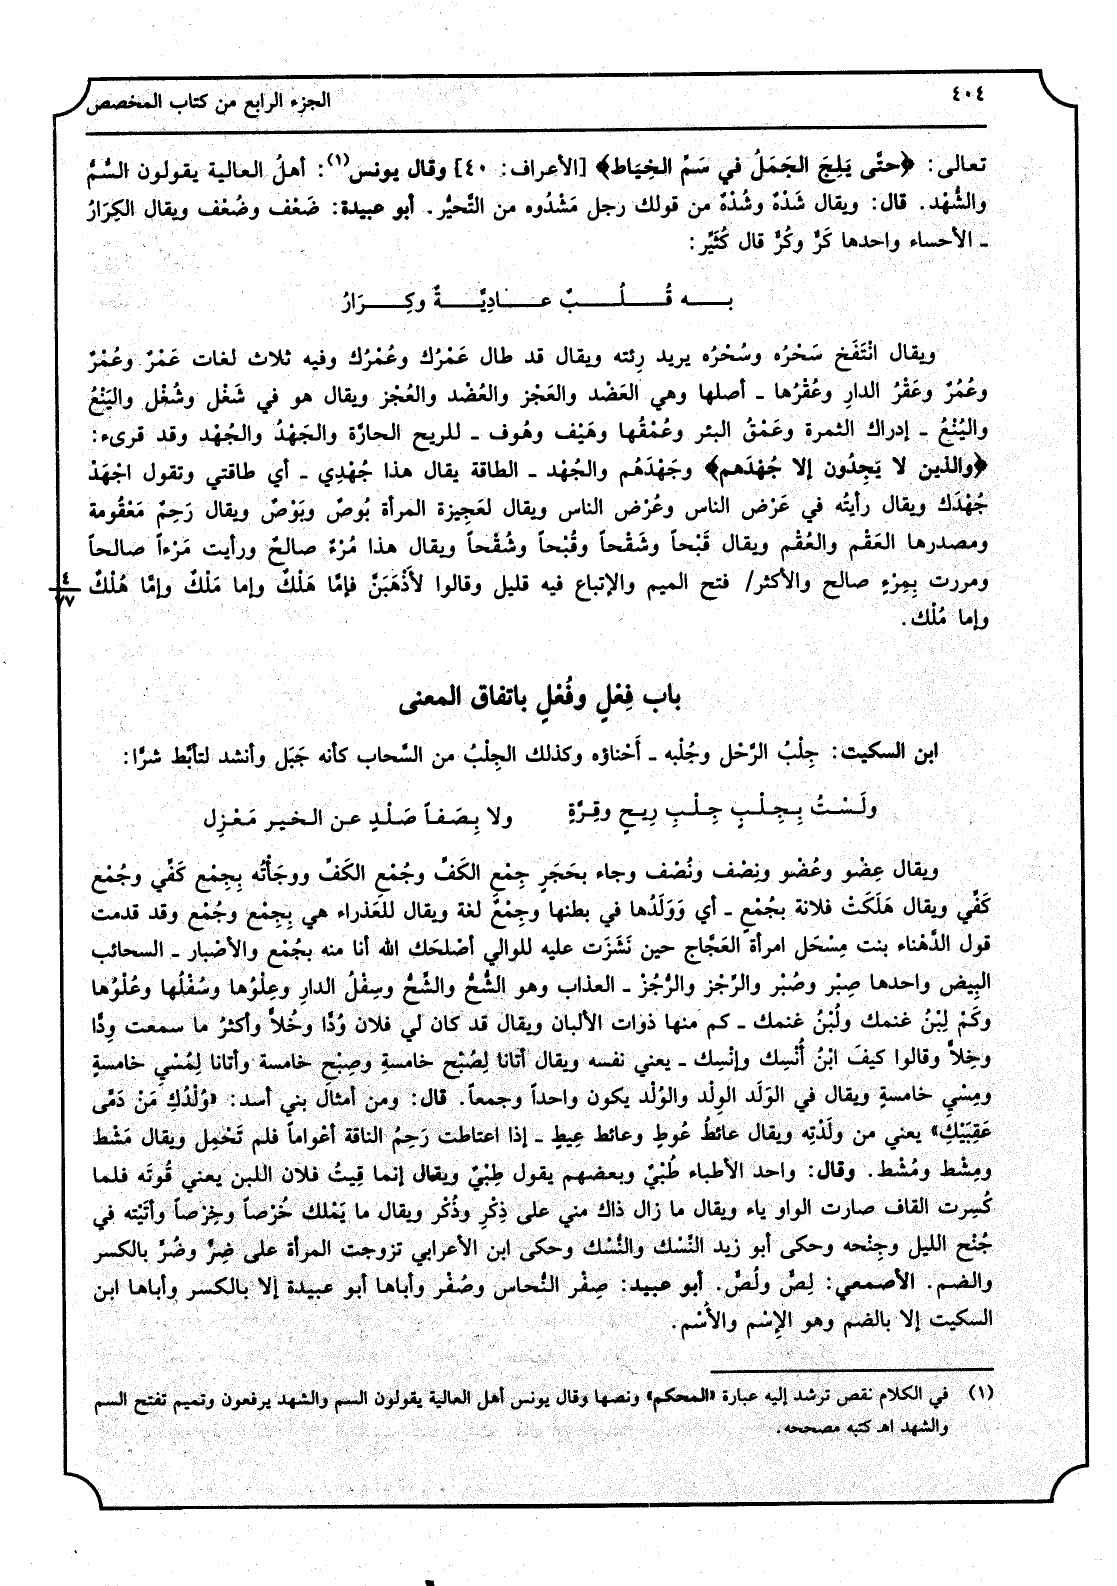 ٤٠٤
الجزء الرابع من كتاب المخصص
تعالى: ﴿حتَّى يَلِجَ الجَمَلُ في سَمِّ الخِيَاط﴾ [الأعراف: ٤٠] وقال يونس(١): أهلُ العالية يقولون السُّمُّ
والشُّهْد. قال: ويقال شَدْهٌ وشُدْهٌ من قولك رجل مَشْدُوه من التَّحيُّر. أبو عبيدة: ضَعْف وضُعْف ويقال الكِرَارُ
ـ الأحساء واحدها كَرٌّ وكُرٌّ قال كُثَيِّر:
بــه قُــلُــبٌ عــادِيَّــةٌ وكِــرَارُ
ويقال انْتَفَخ سَحْرُه وسُحْرُه يريد رِئته ويقال قد طال عَمْرُك وعُمْرُك وفيه ثلاث لغات عَمْرٌ وعُمْرٌ
وعُمُرٌ وعَقْرُ الدارِ وعُقْرُها ـ أصلها وهي العَضْد والعَجْز والعُضْد والعُجْز ويقال هو في شَغْل وشُغْل واليَنْعُ
واليُنْعُ ـ إدراك الثمرة وعَمْقُ البئر وعُمْقُها وهَيْف وهُوف ـ للريح الحارَّة والجَهْدُ والجُهْد وقد قرىء:
﴿والذين لا يَجِدُون إلا جُهْدَهم﴾ وجَهْدَهُم والجُهْد ـ الطاقة يقال هذا جُهْدِي ـ أي طاقتي وتقول اجْهَدْ
جُهْدَك ويقال رأيتُه في عَرْض الناس وعُرْض الناس ويقال لعَجِيزة المرأة بُوصٌ وبَوْصٌ ويقال رَحِمٌ مَعْقُومة
ومصدرها العَقْم والعُقْم ويقال قَبْحاً وشَقْحاً وقُبْحاً وشُقْحاً ويقال هذا مُرْءٌ صالحٌ ورأيت مَرْءاً صالحاً
ومررت بِمِرْءٍ صالح والأكثر/ فتح الميم والإتباع فيه قليل وقالوا لأَذْهَبَنَّ فإمَّا هَلْكٌ وإما مَلْكٌ وإمَّا هُلْكٌ
٤
٧٧
وإما مُلْك.
باب فِعْلٍ وفُعْلٍ باتفاق المعنى
ابن السكيت: جِلْبُ الرَّحْل وجُلْبه ـ أَحْناؤه وكذلك الجِلْبُ من السَّحاب كأنه جَبَل وأنشد لتأبَّط شرًّا:
ولَسْـتُ بِـجِلْـبٍ جِـلْـبِ رِيـحٍ وقِـرَّةٍ ولا بِـصَـفـاً صَـلْـدٍ عـن الـخـيـر مَـعْـزِل
ويقال عِضْو وعُضْو ونِصْف ونُصْف وجاء بحَجَرٍ جِمْعِ الكَفِّ وجُمْعِ الكَفِّ ووجَأْتُه بِجِمْع كَفِّي وجُمْع
كَفِّي ويقال هَلَكَتْ فلانة بجُمْعٍ ـ أي وَوَلَدُها في بطنها وجِمْعٌ لغة ويقال للعَذراء هي بِجِمْع وجُمْع وقد قدمت
قول الدَّهْناء بنت مِسْحَل امرأة العَجَّاج حين نَشَزَت عليه للوالي أصْلحَك الله أنا منه بجُمْع والأصْبار ـ السحائب
البِيض واحدها صِبْر وصُبْر والرِّجْز والرُّجْز ـ العذاب وهو الشُّحُّ والشِّحُّ وسِفْلُ الدارِ وعِلْوُها وسُفْلُها وعُلْوُها
وكَمْ لِبْنُ غنمك ولُبْنُ غنمك ـ كم منها ذوات الألبان ويقال قد كان لي فلان وُدًّا وخُلاًّ وأكثرُ ما سمعت وِدًّا
وخِلاًّ وقالوا كيفَ ابْنُ أُنْسِك وإنْسِك ـ يعني نفسه ويقال أتانا لِصُبْح خامسةِ وصِبْحِ خامسة وأتانا لِمُسْي خامسةٍ
ومِسْيِ خامسةٍ ويقال في الوَلَد الوِلْد والوُلْد يكون واحداً وجمعاً. قال: ومن أمثال بني أسد: «وُلْدُكِ مَنْ دَمَّى
عَقِبَيْكِ» يعني من ولَدْتِه ويقال عائطُ عُوطٍ وعائط عِيطٍ ـ إذا اعتاطت رَحِمُ الناقة أعْواماً فلم تَحْمِل ويقال مَشْط
ومِشْط ومُشْط. وقال: واحد الأطباء طُبْيٌ وبعضهم يقول طِبْيٌ ويقال إنما قِيتُ فلان اللبن يعني قُوتَه فلما
كُسِرت القاف صارت الواو ياء ويقال ما زال ذاك مني على ذِكْرٍ وذُكْر ويقال ما يَمْلك خُرْصاً وخِرْصاً وأتَيْته في
جُنْح الليل وجِنْحه وحكى أبو زيد النِّسْك والنُّسْك وحكى ابن الأعرابي تزوجت المرأة على ضِرٍّ وضُرٍّ بالكسر
والضم. الأصمعي: لِصٌّ ولُصٌّ. أبو عبيد: صِفْر النُّحاس وصُفْر وأباها أبو عبيدة إلا بالكسر وأباها ابن
السكيت إلا بالضم وهو الإِسْم والأُسْم.
(١) في الكلام نقص ترشد إليه عبارة «المحكم» ونصها وقال يونس أهل العالية يقولون السم والشهد يرفعون وتميم تفتح السم
والشهد اهـ كتبه مصححه.